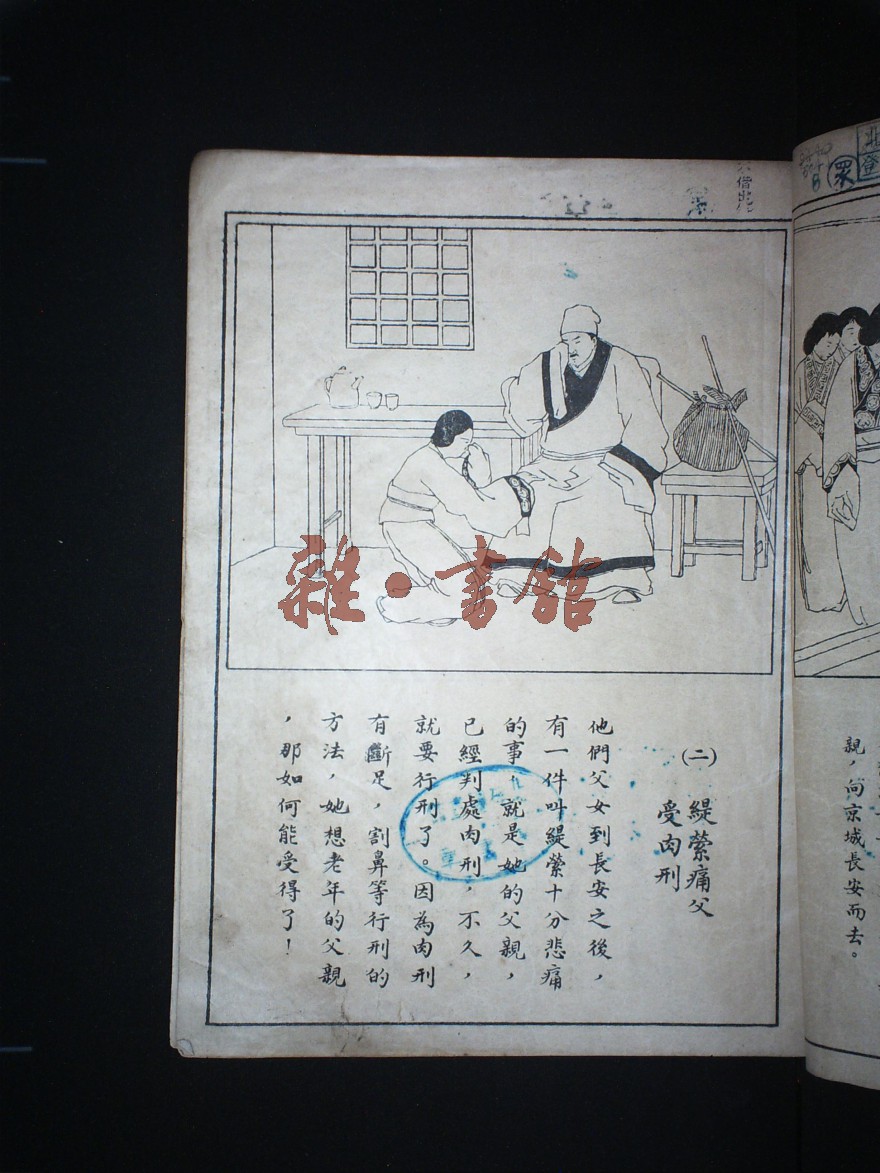 北
登
眾
B
公借出凡
雜·書館
(二)
緹縈痛父
受肉刑
他們父女到長安之後，
有一件叫緹縈十分悲痛
的事，就是她的父親，
已經判處肉刑，不久，
就要行刑了。因為肉刑
有斷足，割鼻等行刑的
方法，她想老年的父親
，那如何能受得了！
親，向京城長安而去。